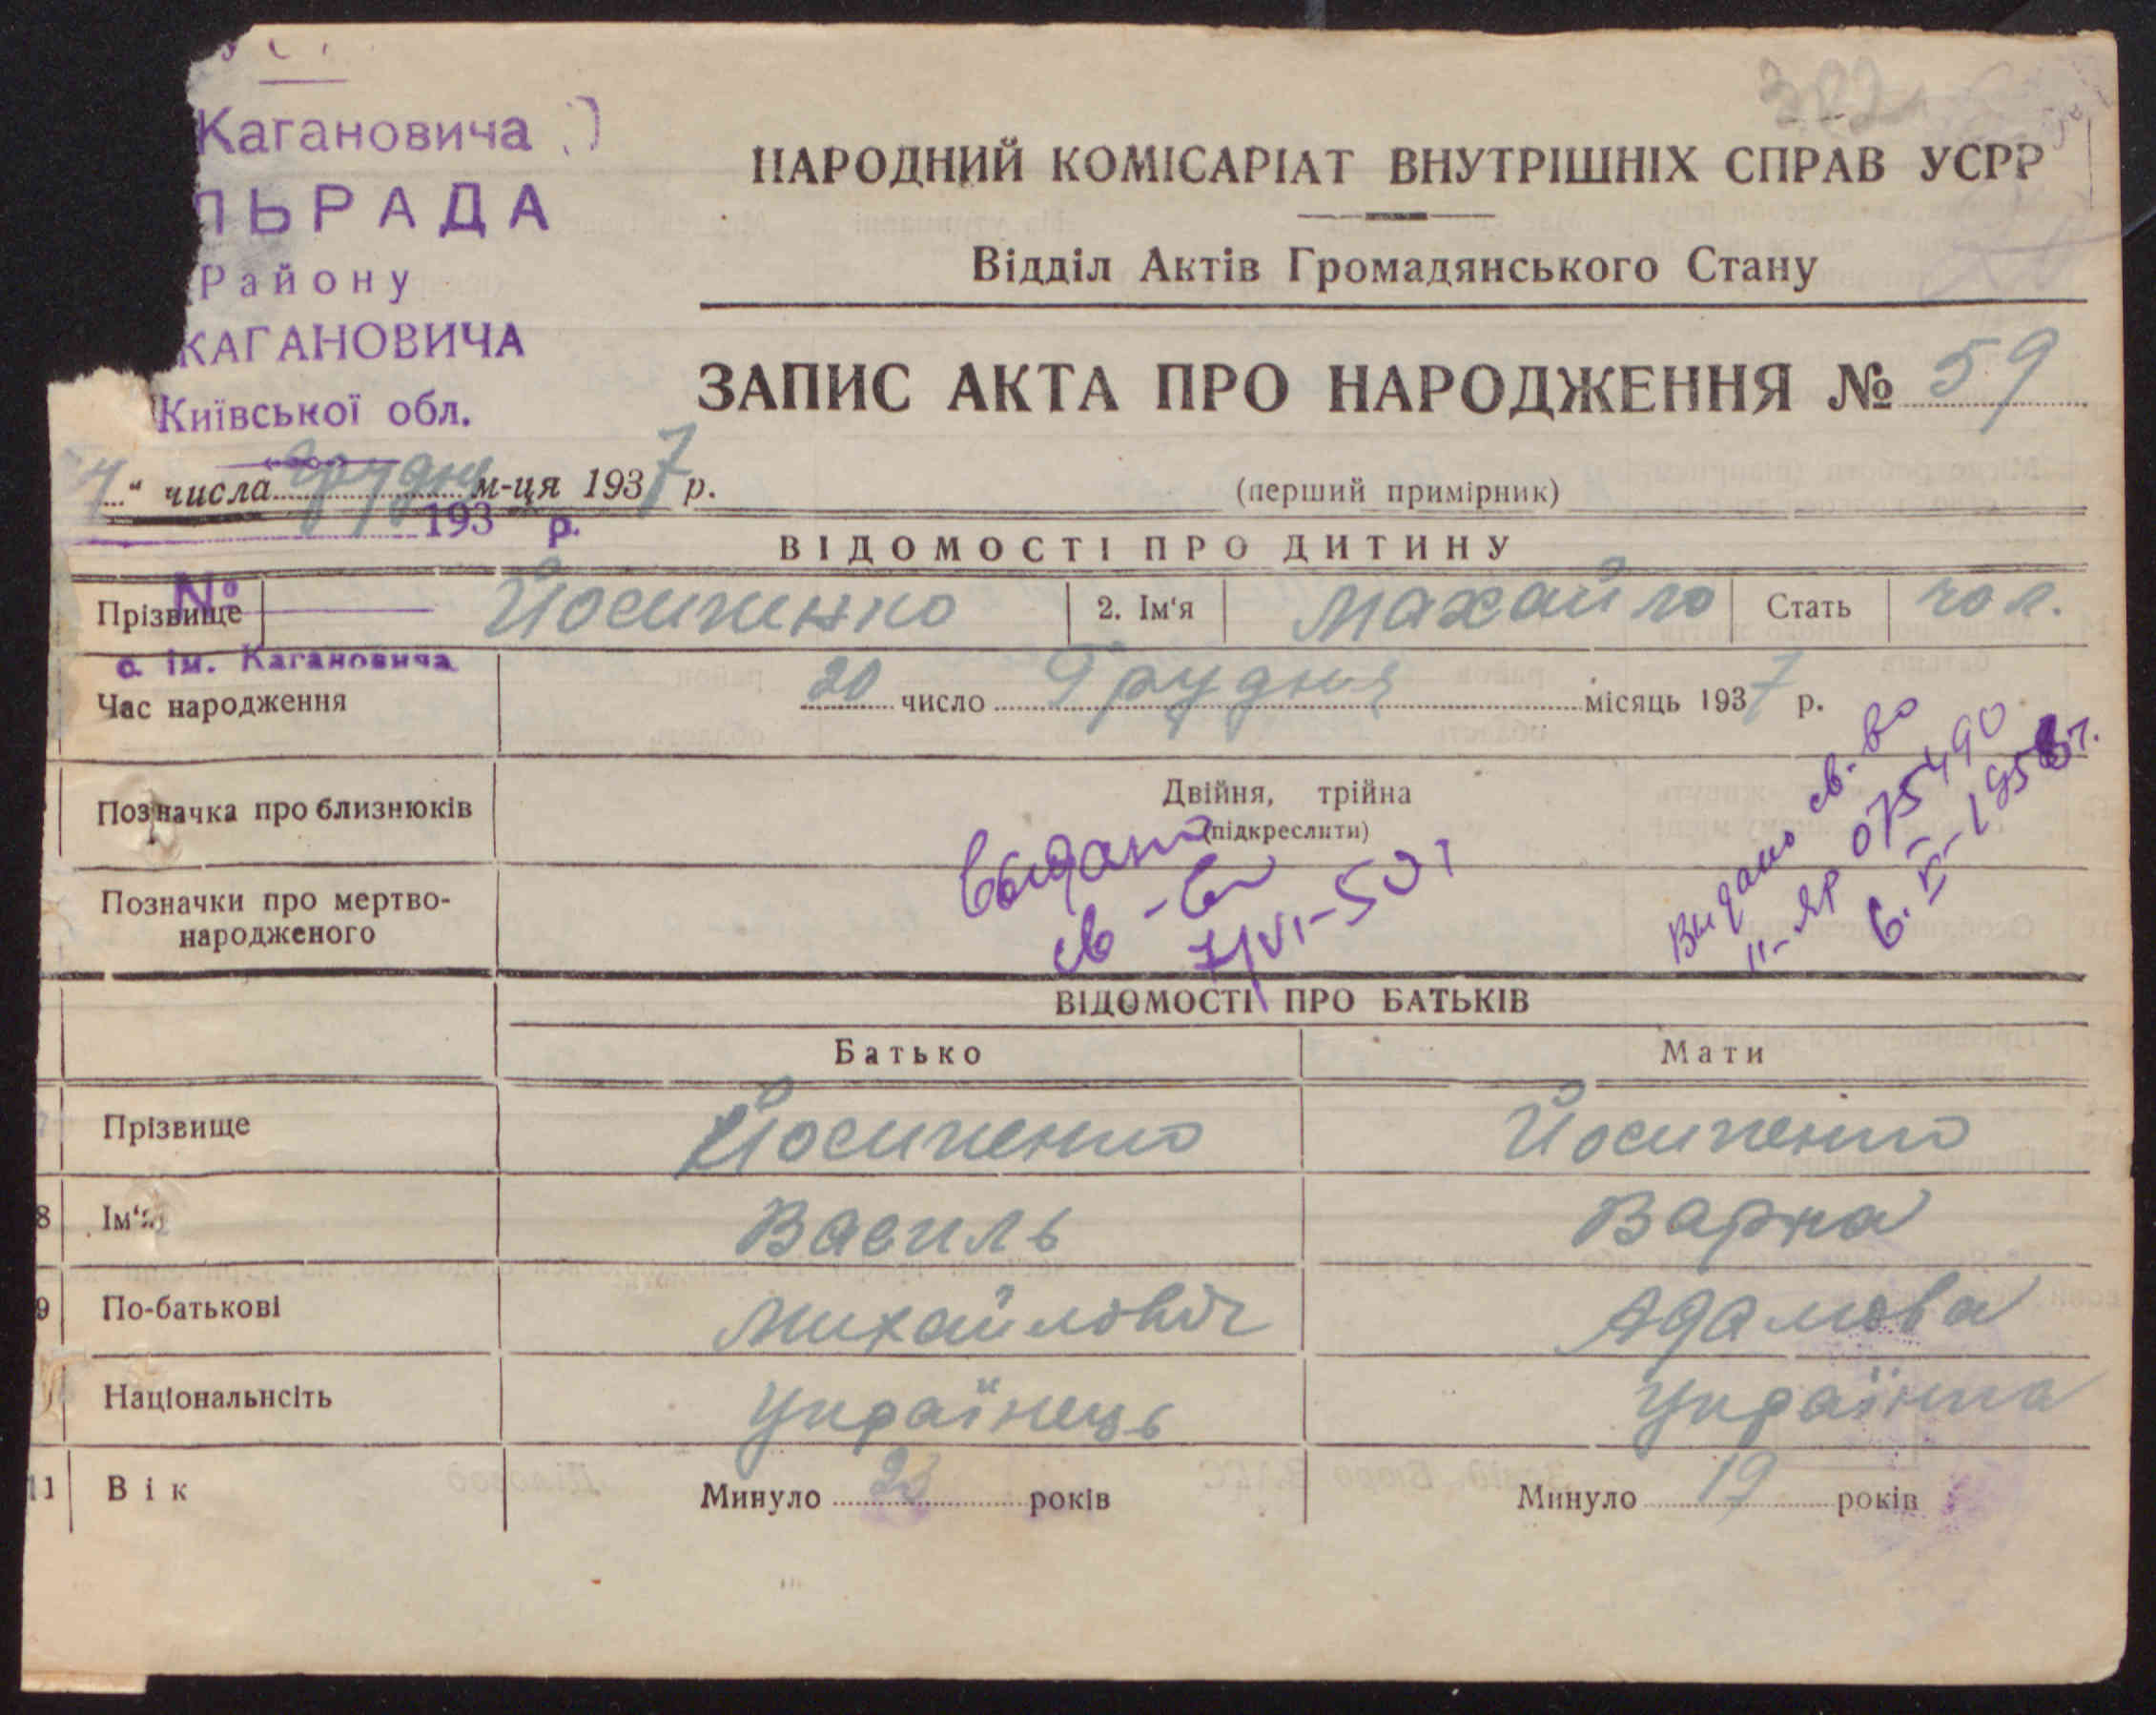 Кагановича
ЛЬРАДА
Району
КАГАНОВИЧА
Київської обл.
193 р.
№
с. ім. Кагановича
НАРОДНИЙ КОМІСАРІАТ ВНУТРІШНІХ СПРАВ УСРР
Відділ Актів Громадянського Стану
ЗАПИС АКТА ПРО НАРОДЖЕННЯ № 59
" числа грудня м-ця 1937 р.
(перший примірник)
ВІДОМОСТІ ПРО ДИТИНУ
Прізвище Йосипенко 2. Ім'я Махайло Стать чол.
Час народження 20 число Грудня місяць 1937 р.
Позначка про близнюків Двійня, трійна
(підкреслити)
Позначки про мертво-
народженого
выдано
св-во
7/VI-50г
Видано св-во
II-ЯР 075490
6.VI-1956г.
ВІДОМОСТІ ПРО БАТЬКІВ
Батько Мати
Прізвище Йосипенко Йосипенко
8 Ім'я Василь Варка
9 По-батькові Михайловіч Адамова
Національнсіть Українець Українка
11 Вік Минуло 23 років Минуло 19 років